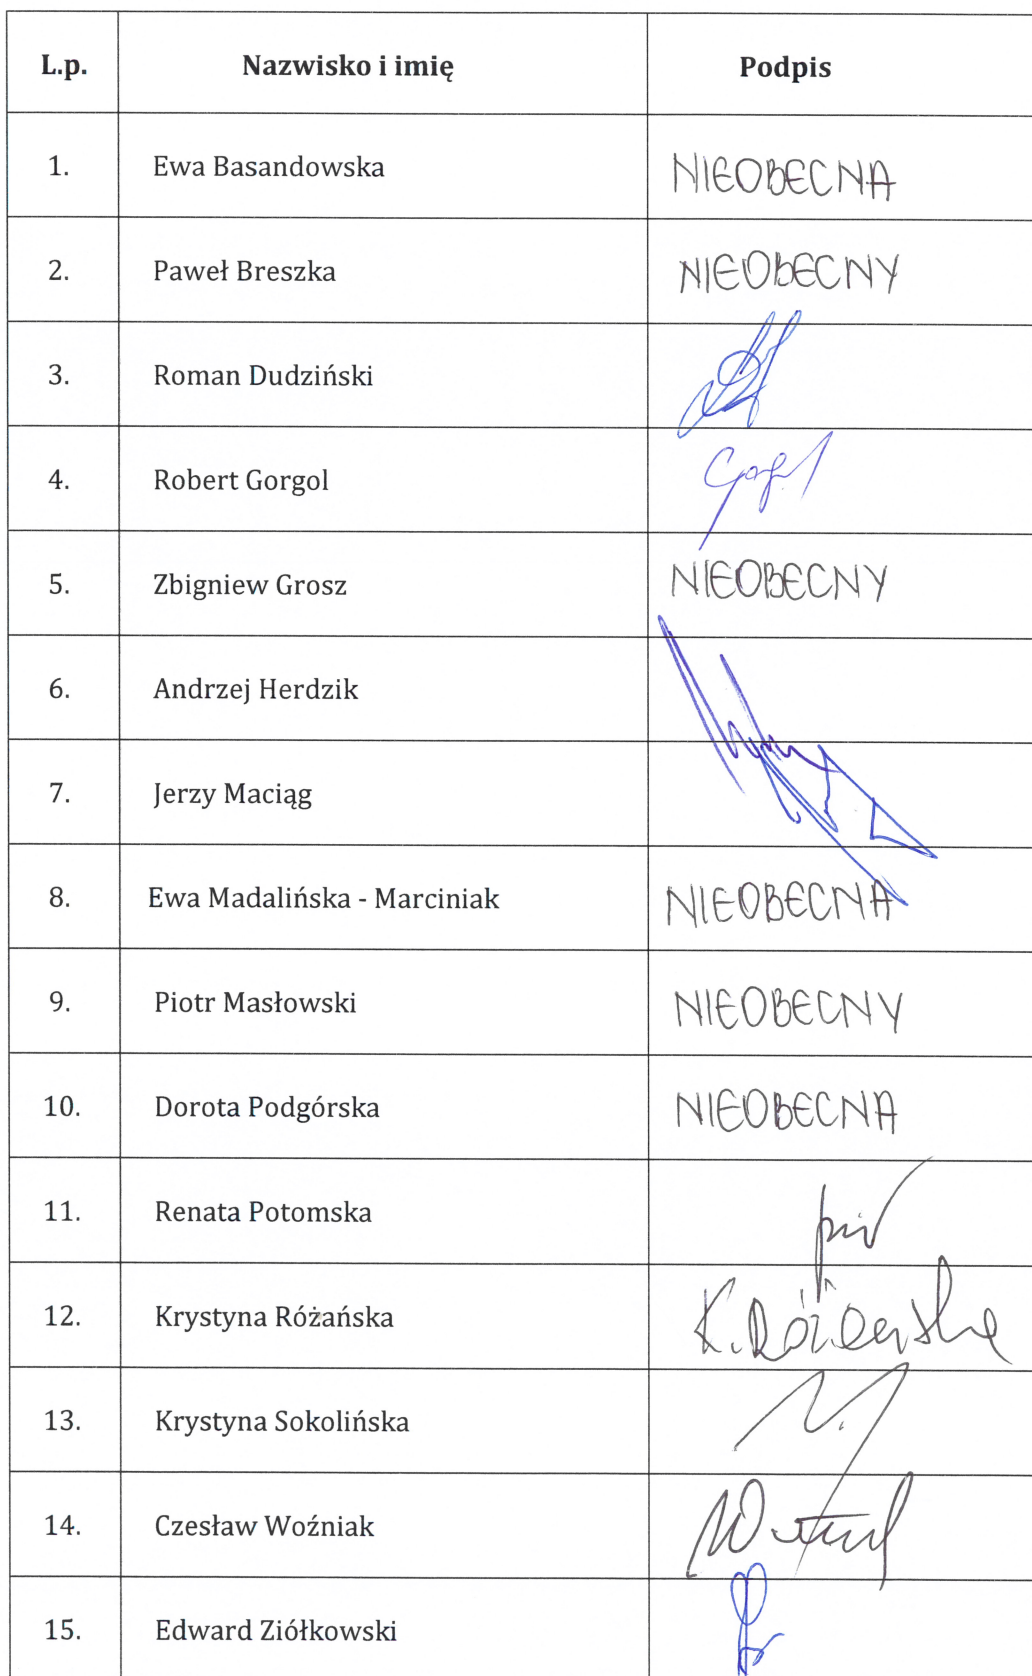 L.p. Nazwisko i imię Podpis
1. Ewa Basandowska NIEOBECNA
2. Paweł Breszka NIEOBECNY
3. Roman Dudziński
4. Robert Gorgol
5. Zbigniew Grosz NIEOBECNY
6. Andrzej Herdzik
7. Jerzy Maciąg
8. Ewa Madalińska - Marciniak NIEOBECNA
9. Piotr Masłowski NIEOBECNY
10. Dorota Podgórska NIEOBECNA
11. Renata Potomska
12. Krystyna Różańska K. Różańska
13. Krystyna Sokolińska
14. Czesław Woźniak
15. Edward Ziółkowski